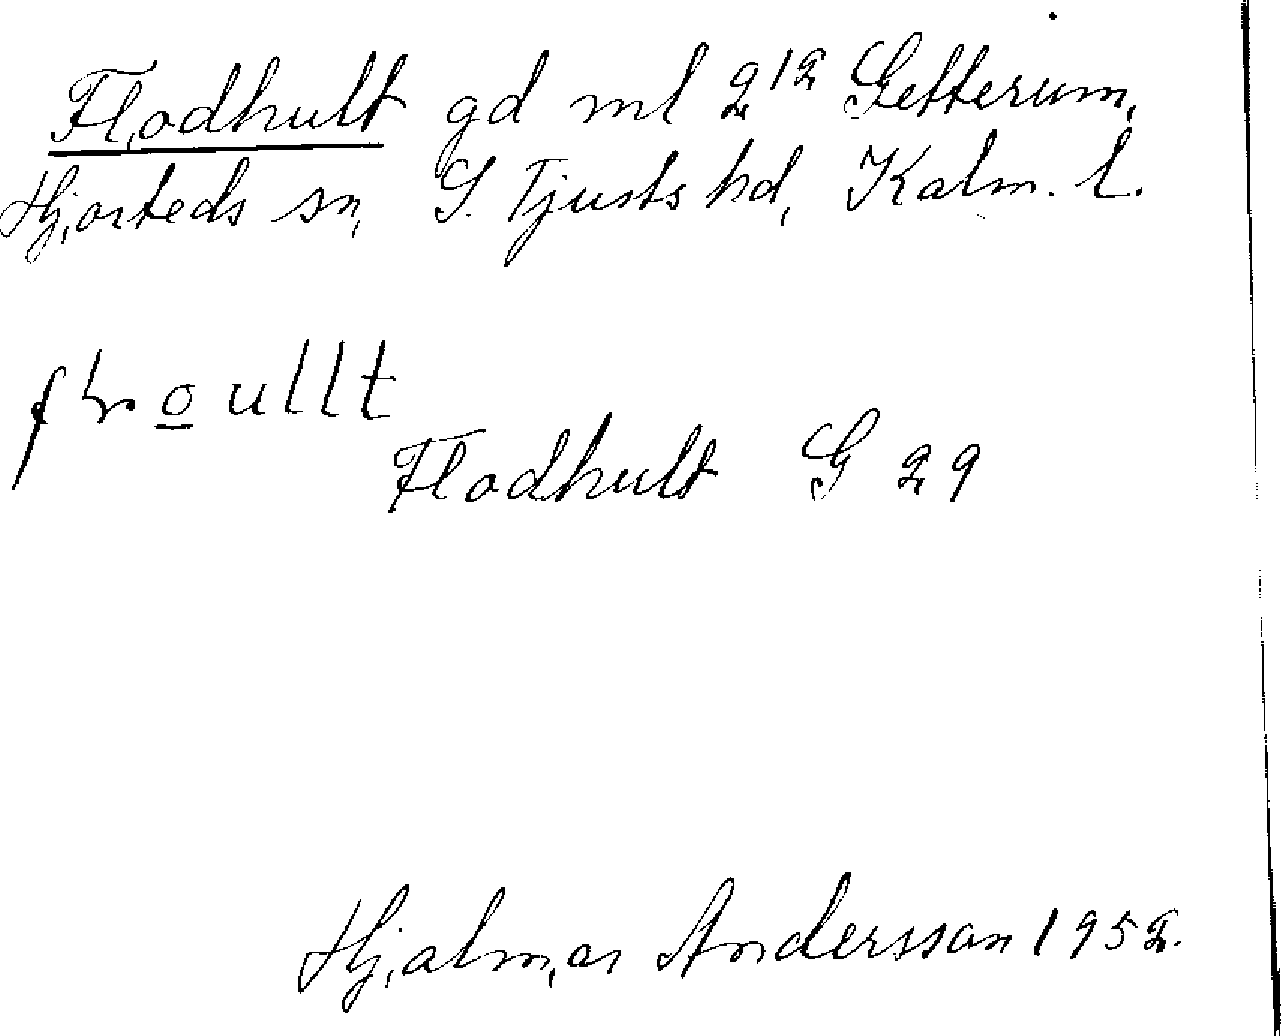 Flodhult gd ml 2¹² Getterum,
Hjorteds sn, S. Tjusts hd, Kalm. l.
Flodhult G 29
Hjalmar Andersson 1952.